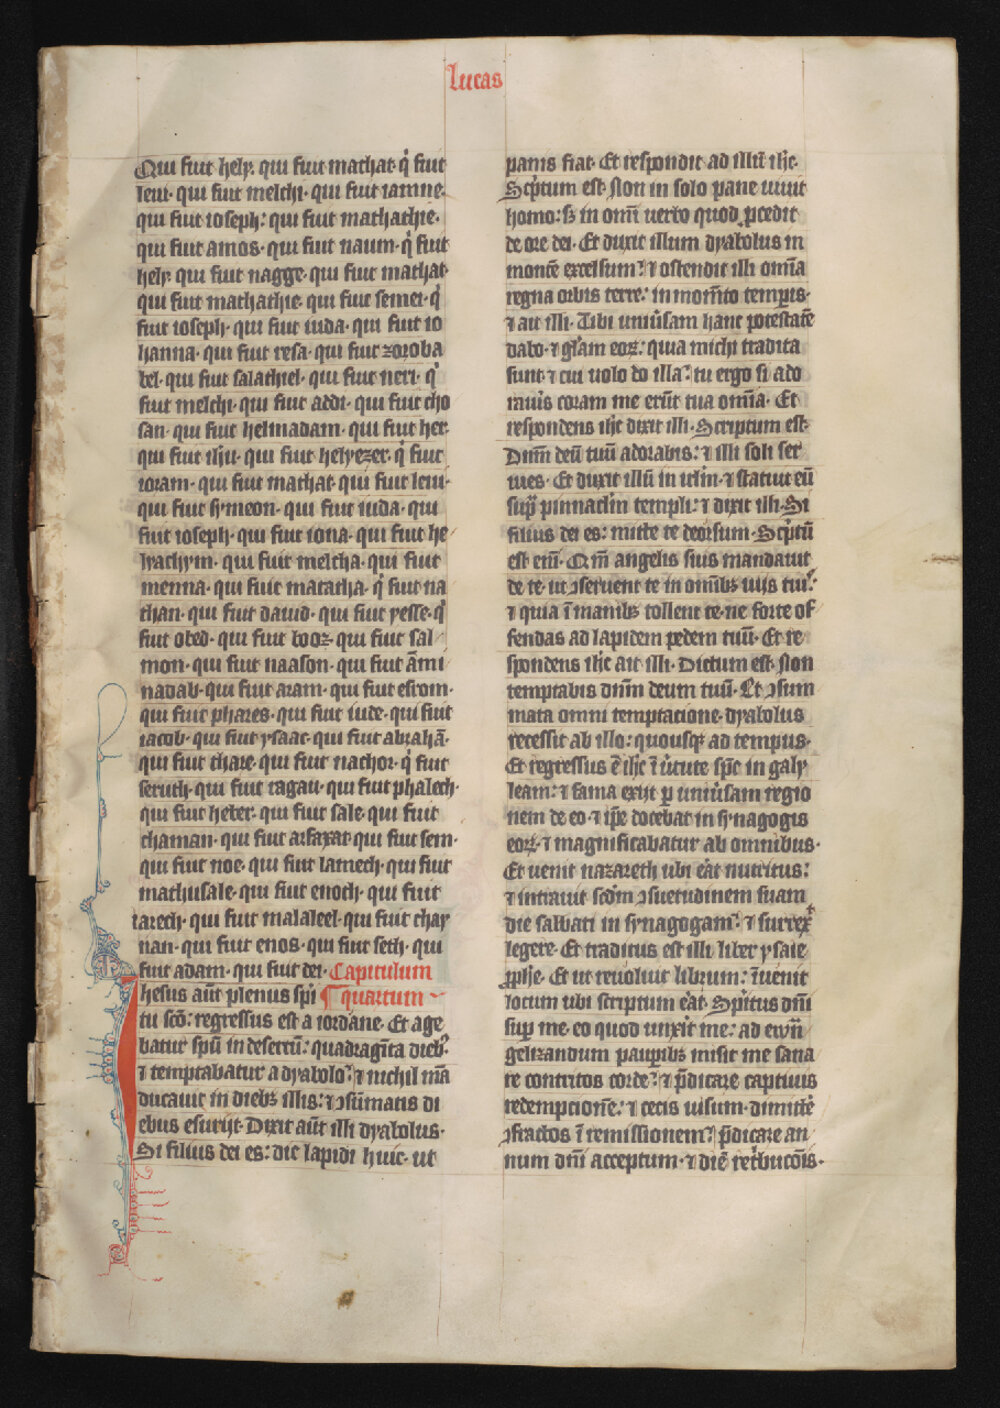 lucas
Qui fuit hely· qui fuit mathat· q̇ fuit
leui· qui fuit melchi· qui fuit iamne·
qui fuit ioseph: qui fuit mathathie·
qui fuit amos· qui fuit naum· q̇ fuit
hely· qui fuit nagge· qui fuit mathat·
qui fuit mathathie· qui fuit semei· q̇
fuit ioseph· qui fuit iuda· qui fuit io
hanna· qui fuit resa· qui fuit zoroba
bel· qui fuit salathiel· qui fuit neri· q̇
fuit melchi· qui fuit addi· qui fuit cho
san· qui fuit helmadam· qui fuit her·
qui fuit ihu· qui fuit helyezer· q̇ fuit
ioram· qui fuit mathat· qui fuit leui·
qui fuit symeon· qui fuit iuda· qui
fuit ioseph· qui fuit iona· qui fuit he
lyachym· qui fuit melcha· qui fuit
menna· qui fuit matatha· q̇ fuit na
than· qui fuit dauid· qui fuit yesse· q̇
fuit obed· qui fuit booz· qui fuit sal
mon· qui fuit naason· qui fuit āmi
nadab· qui fuit aram· qui fuit esrom·
qui fuit phares· qui fuit iude· qui fuit
iacob· qui fuit ysaac· qui fuit abrahā·
qui fuit thare· qui fuit nachor· q̇ fuit
seruth· qui fuit ragau· qui fuit phalech·
qui fuit heber· qui fuit sale· qui fuit
chaman· qui fuit arfaxat· qui fuit sem·
qui fuit noe· qui fuit lamech· qui fuit
mathusale· qui fuit enoch· qui fuit
iarech· qui fuit malaleel· qui fuit chay
nan· qui fuit enos· qui fuit seth· qui
fuit adam· qui fuit dei· Capitulum
Ihesus aūt plenus spi ¶ quartum
tu scō: regressus est a iordane· Et age
batur spū in desertū: quadragīta dieb⁊
⁊ temptabatur a dyabolo: ⁊ nichil mā
ducauit in dieb⁊ illis: ⁊ ↄsūmatis di
ebus esurijt· Dixit aūt illi dyabolus·
Si filius dei es: dic lapidi huic· ut
panis fiat· Et respondit ad illū ihc̄·
Sc̄ptum est· Non in solo pane uiuit
homo: s⁊ in omī uerbo quod ꝓcedit
de ore dei· Et duxit illum dyabolus in
montē excelsum: ⁊ ostendit illi omīa
regna orbis terre: in momēto temporis·
⁊ ait illi· Tibi uniūsam hanc potestatē
dabo· ⁊ gl̄am eoꝝ: quia michi tradita
sunt· ⁊ cui uolo do illa: tu ergo si ado
rauīs coram me erūt tua omīa· Et
respondens ihc̄ dixit illi· Scriptum est·
Dnm̄ deū tuū adorabis: ⁊ illi soli ser
uies· Et duxit illū in irlm̄· ⁊ statuit eū
sup̄ pinnaclm̄ templi: ⁊ dixit illi· Si
filius dei es: mitte te deorsum· Sc̄ptū
est enī· Qm̄ angelis suis mandauit
de te· ut ↄseruent te in omīb⁊ uijs tuis:
⁊ quia ī manib⁊ tollent te· ne forte of
fendas ad lapidem pedem tuū· Et re
spondens ihc̄ ait illi· Dictum est· Non
temptabis dnm̄ deum tuū· Et ↄsum
mata omni temptacione· dyabolus
recessit ab illo: quousqꝫ ad tempus·
Et regressus ē ihc̄ ī uirtute spc̄ in galy
leam: ⁊ fama exijt ꝑ uniūsam regio
nem de eo· ⁊ ip̄e docebat in synagogis
eoꝝ· ⁊ magnificabatur ab omnibus·
Et uenit nazareth ubi erat nutritus:
⁊ intrauit scd̄m ↄsuetudinem suam
die sabbati in synagogam: ⁊ surrex̄
legere· Et traditus est illi liber ysaie
ꝓphe· Et ut reuoluit librum: īuenit
locum ubi scriptum erat· Spīritus dnī
sup̄ me· eo quod unxit me: ad ewā
gelizandum pauperib⁊ misit me sana
re contritos corde: ⁊ p̄dicare captiuis
redempcionē: ⁊ cecis uisum· dimittē
ↄfractos ī remissionem: p̄dicare an
num dnī acceptum· ⁊ diē retribucōis·